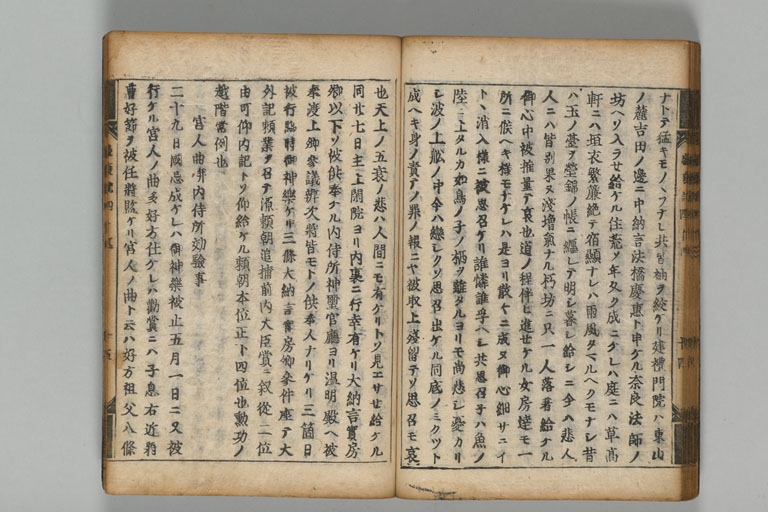 ナトテ猛キモノノフナレ共皆袖ヲ絞ケリ建禮門院ハ東山
ノ麓吉田ノ邊ニ中納言法橋慶惠ト申ケル奈良法師ノ
坊ヘソ入ラセ給ケル住荒ソ年久ク成ニケレハ庭ニハ草高
軒ニハ垣衣繁簾絶テ宿顯ナレハ雨風タマルヘクモナシ昔
ハ玉ノ臺テ瑩錦ノ帳ニ纏レテ明シ暮シ給シニ今ハ悲人
人ニハ皆別果ヌ淺増氣ナル朽坊ニ只一人落着給ケル
御心中被推量テ哀也道ノ程伴ヒ進セケル女房達モ一
所ニ候ヘキ樣モナケレハ是ヨリ散々ニ成ヌ御心細サニイ
トヽ消入樣ニ被思召ケリ誰憐誰孚ヘシ共思召子ハ魚ノ
陸ニ上タルカ如鳥ノ子ノ栖ヲ離タルヨリモ尚悲シ憂カリ
シ波ノ上舩ノ中今ハ戀シクソ思召出ケル同底ノミクツト
成ヘキ身ノ責テノ罪ノ報ニヤ被取上殘留テソ思召モ哀
也天上ノ五衰ノ悲ハ人間ニモ有ケリトソ見エサセ給ケル
同廿七日主上閑院ヨリ内裏ニ行幸有ケリ大納言實房
卿以下ソ被供奉ケル内侍所神璽官廳ヨリ温明殿ヘ被
奉渡上卿參議辨次將皆モトノ供奉人ナリケリ三箇日
被行臨時御神樂ケリ三條大納言實房卿參仲座テ大
外記頼業ヲ召テ源頼朝追捕前内大臣賞ニ叙從二位
由可仰内記トソ仰給ケル頼朝本位正下四位也勲功ノ
越階常例也
宮人曲幷内侍所効驗事
二十九日國忌成ケレハ御神樂被止五月一日ニ又被
行ケル宮人ノ曲多好方仕ケレハ勸賞ニハ子息右近將
曹好節ヲ被任將監ケリ宮人ノ曲ト云ハ好方祖父八條